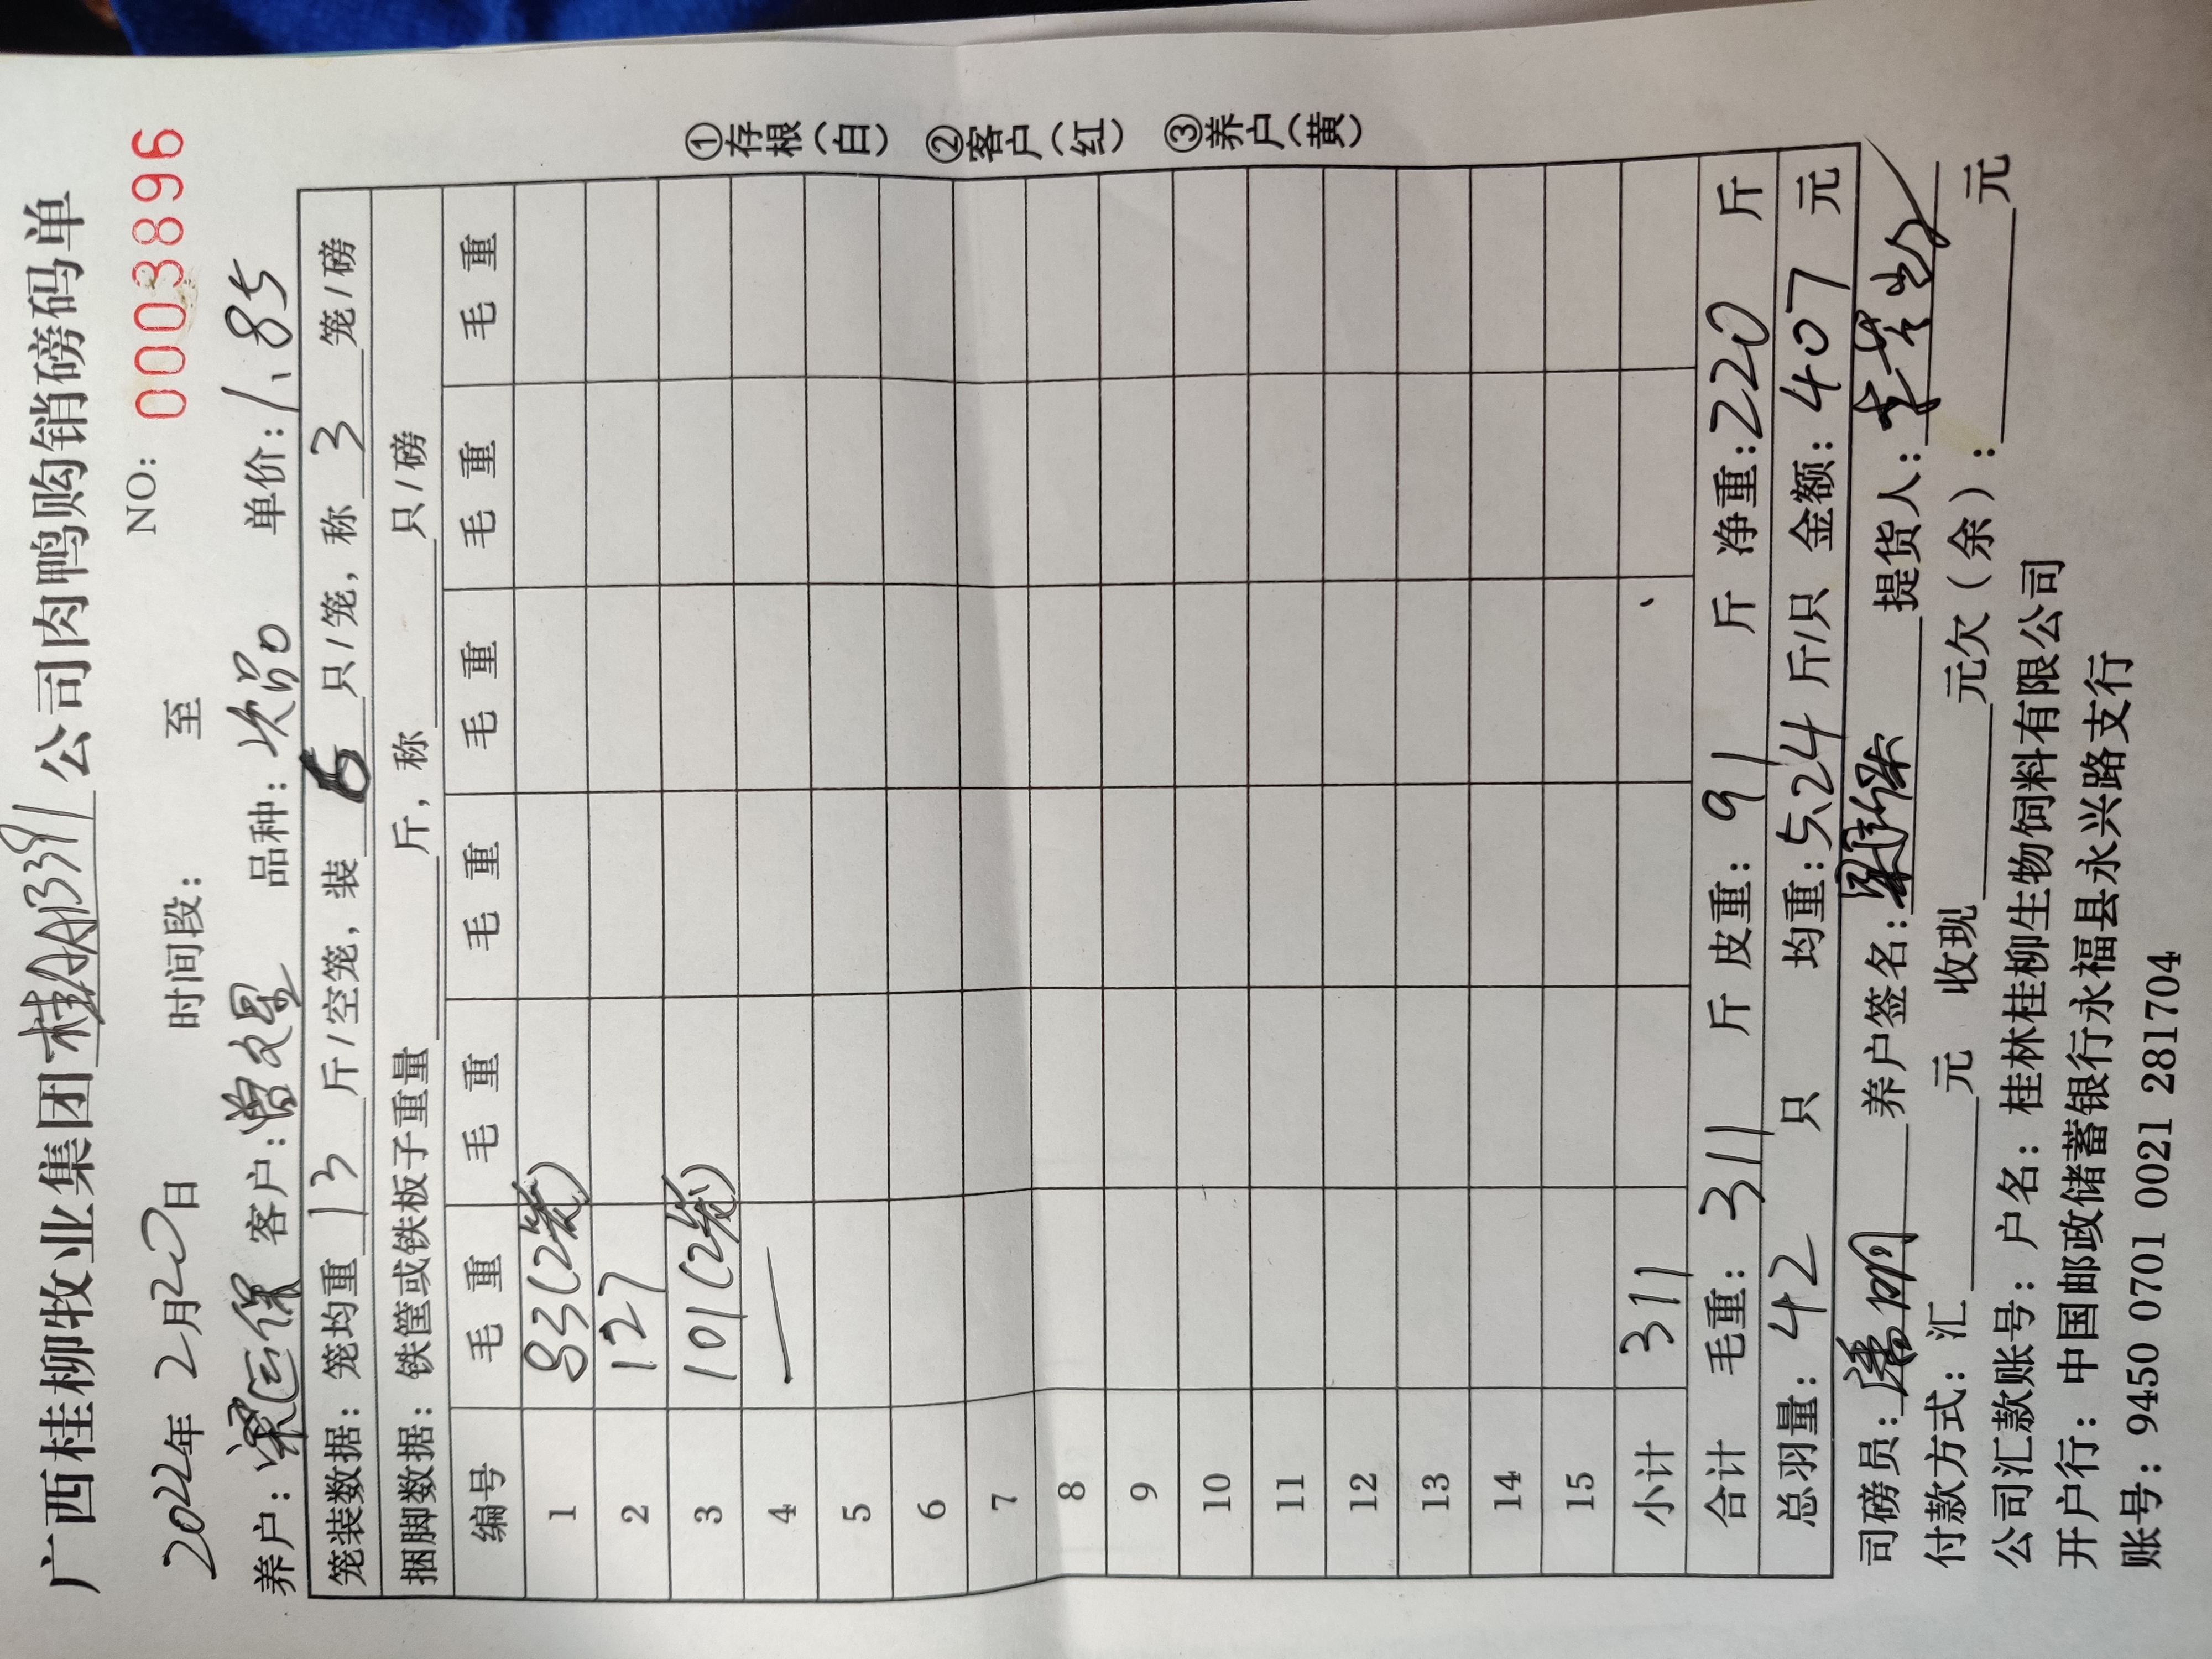 广西桂柳牧业集团桂AA1391公司肉鸭购销磅码单
NO: 0003896
2022年2月20日 时间段: 至
养户: 梁运保 客户: 曾 品种: 次品 单价: 1.85
笼装数据: 笼均重 13 斤/空笼, 装 6 只/笼, 称 3 笼/磅
捆脚数据: 铁筐或铁板子重量 斤, 称 只/磅
编号 毛重 毛重 毛重 毛重 毛重 毛重
1 83(2笼)
2 127
3 101(2笼)
4 —
5
6
7
8
9
10
11
12
13
14
15
小计 311
合计 毛重: 311 斤 皮重: 91 斤 净重: 220 斤
总羽量: 42 只 均重: 5.24 斤/只 金额: 407 元
司磅员: 养户签名: 提货人:
付款方式: 汇 元 收现 元欠(余): 元
公司汇款账号: 户名: 桂林桂柳生物饲料有限公司
开户行: 中国邮政储蓄银行永福县永兴路支行
账号: 9450 0701 0021 281704
①存根(白) ②客户(红) ③养户(黄)